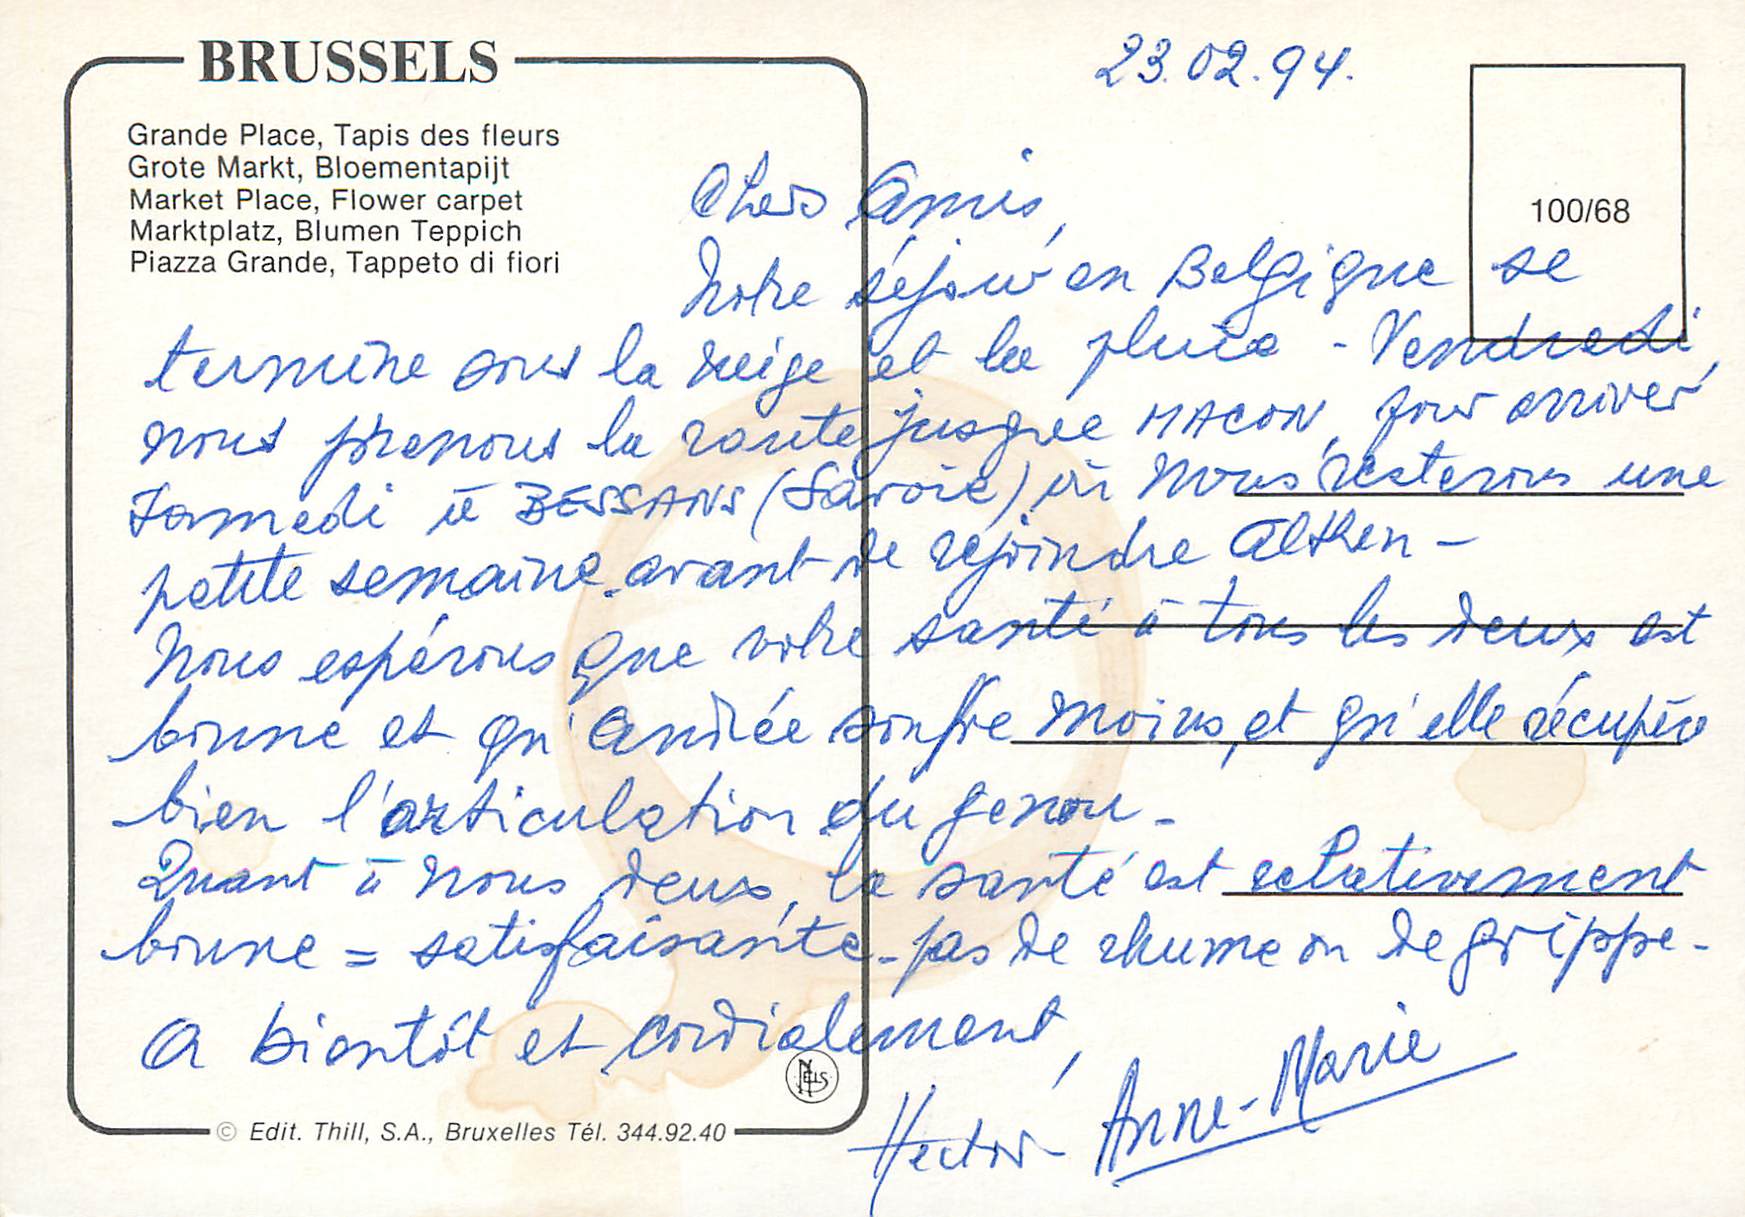 BRUSSELS
Grande Place, Tapis des fleurs
Grote Markt, Bloementapijt
Market Place, Flower carpet
Marktplatz, Blumen Teppich
Piazza Grande, Tappeto di fiori
23.02.94.
100/68
Chers Amis,
Notre séjour en Belgique se
termine sous la neige et la pluie - Vendredi,
nous prenons la route jusque MACON, pour arriver
Samedi à BESSANS (Savoie) où nous resterons une
petite semaine avant de rejoindre Althen -
Nous espérons que votre santé à tous les deux est
bonne et qu'Andrée souffre moins, et qu'elle récupère
bien l'articulation du genou -
Quant à nous deux, la santé est relativement
bonne = satisfaisante - pas de rhume ou de grippe -
A bientôt et cordialement,
Hector - Anne-Marie
NELS
© Edit. Thill, S.A., Bruxelles Tél. 344.92.40